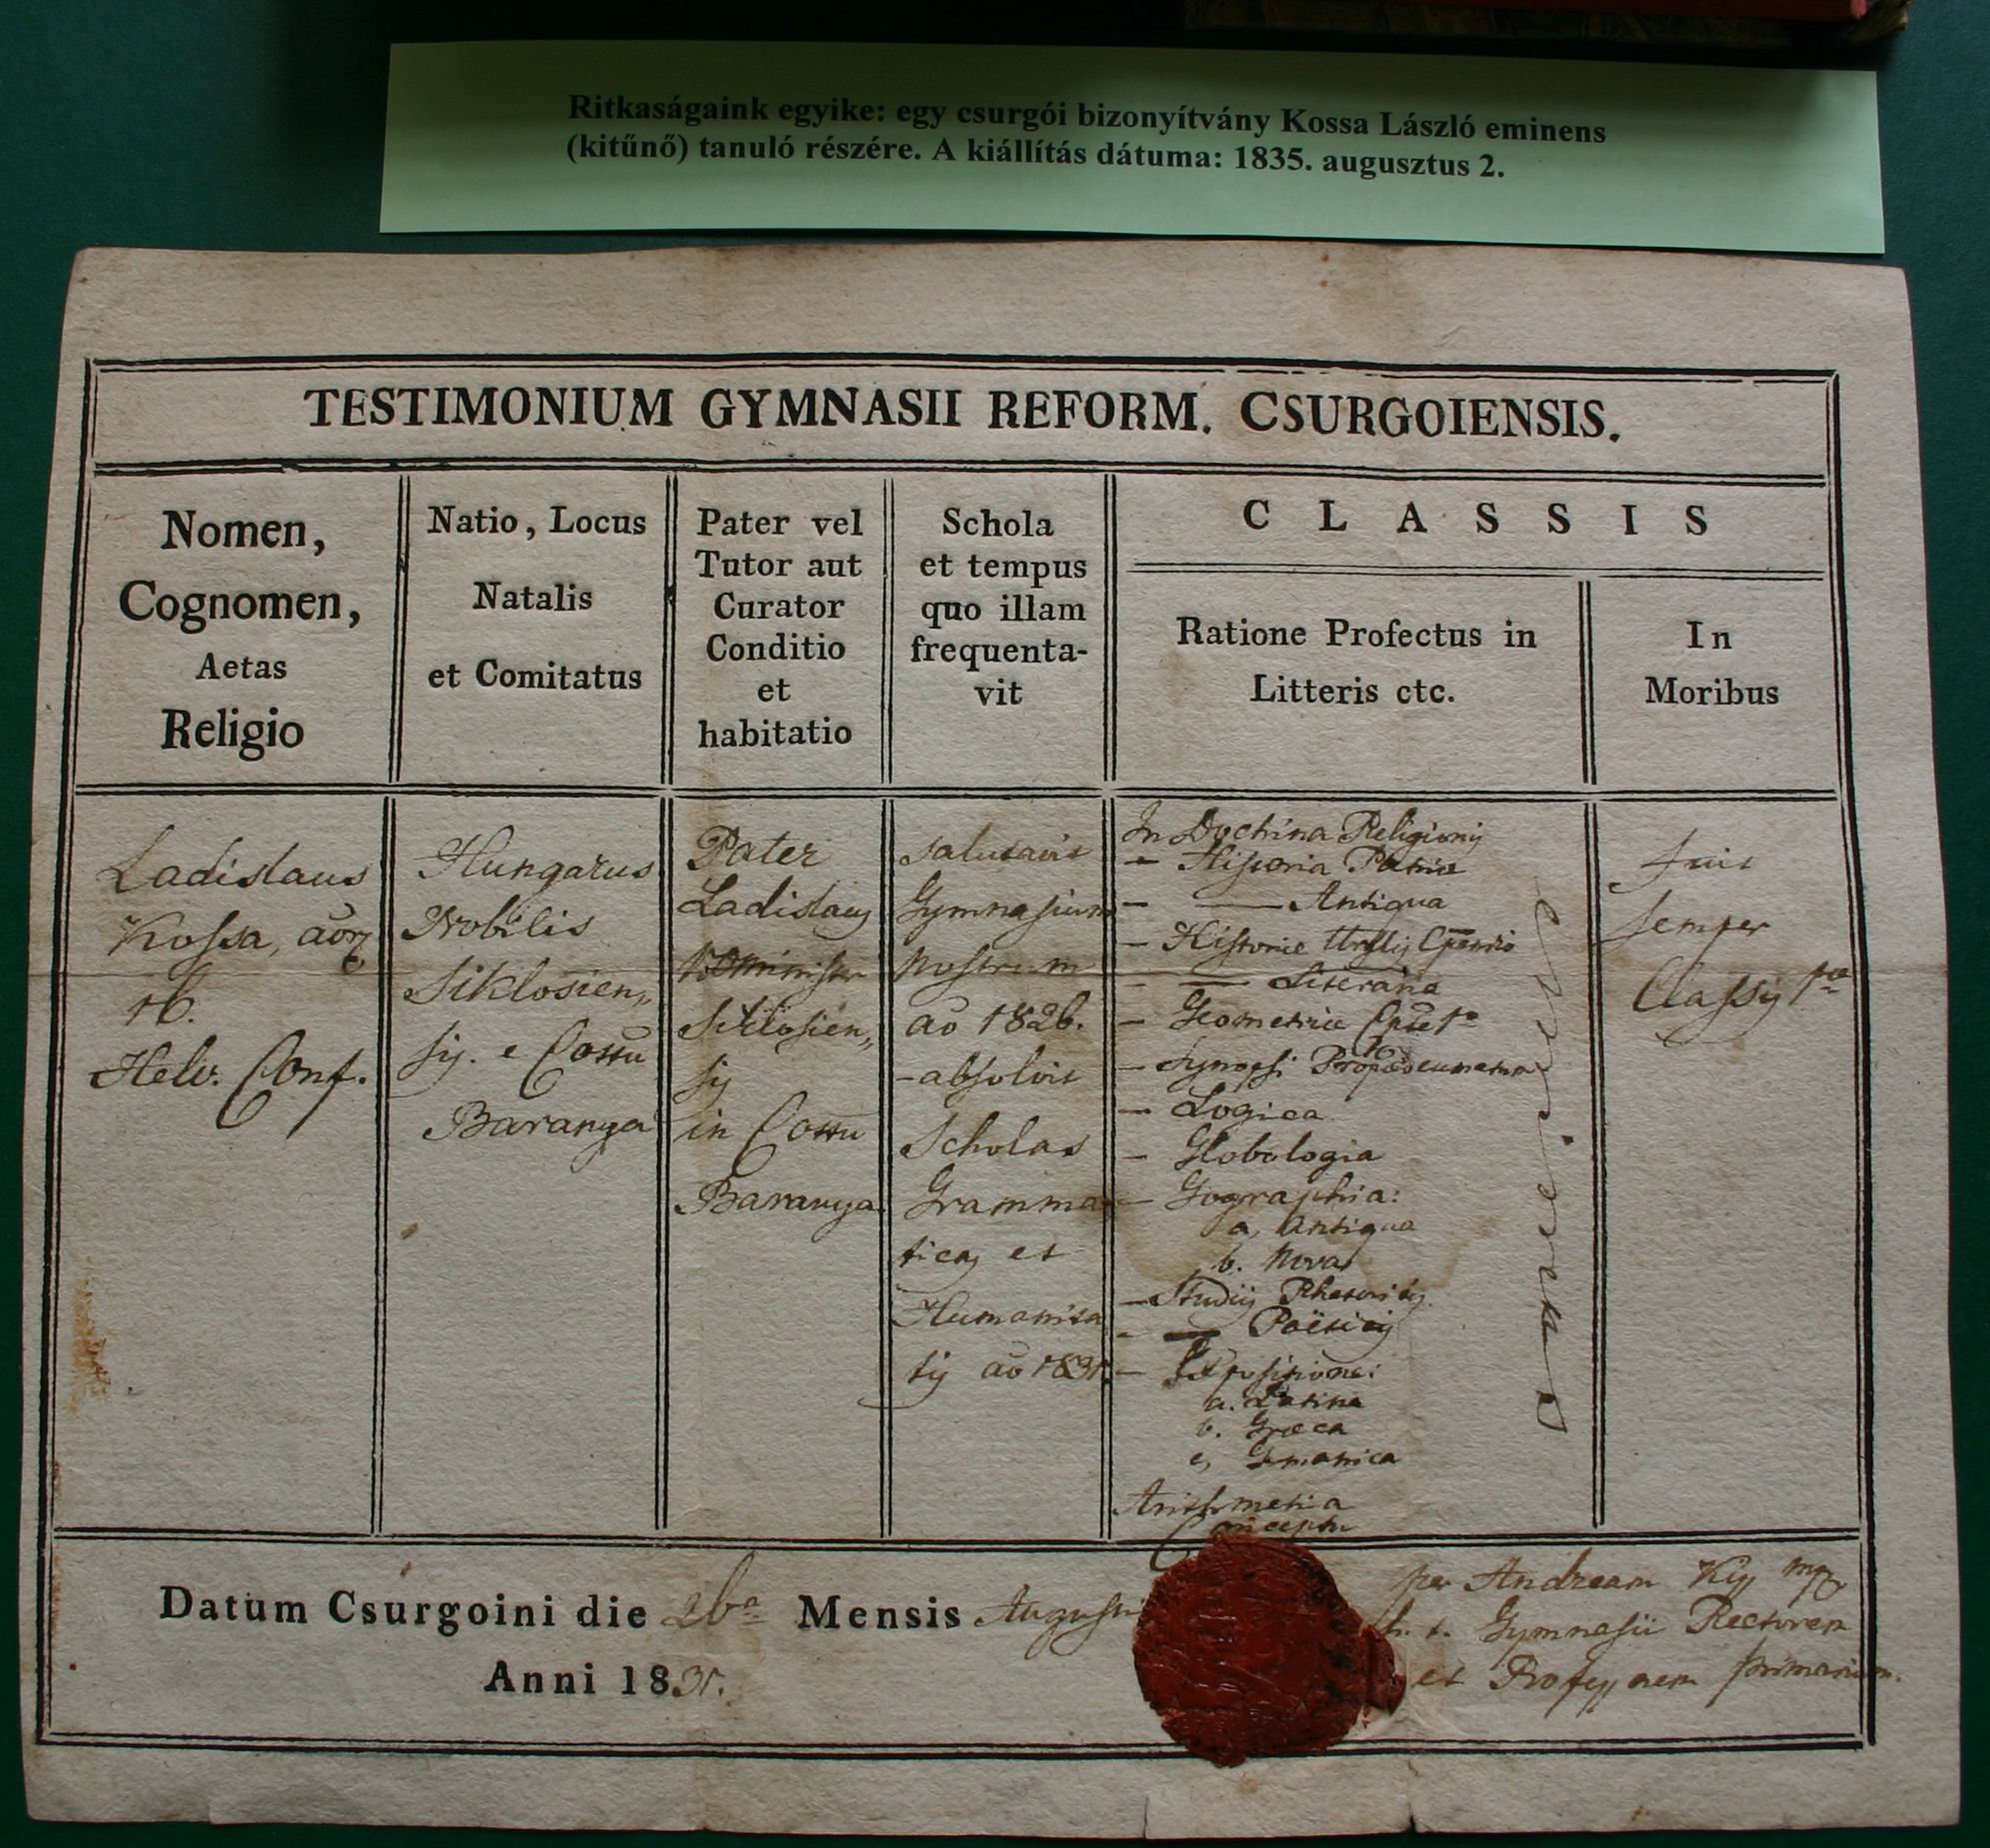 Ritkaságaink egyike: egy csurgói bizonyítvány Kossa László eminens
(kitűnő) tanuló részére. A kiállítás dátuma: 1835. augusztus 2.
TESTIMONIUM GYMNASII REFORM. CSURGOIENSIS.
Nomen,
Cognomen,
Aetas
Religio
Natio, Locus
Natalis
et Comitatus
Pater vel
Tutor aut
Curator
Conditio
et
habitatio
Schola
et tempus
quo illam
frequenta-
vit
CLASSIS
Ratione Profectus in
Litteris etc.
In
Moribus
Ladislaus
Kossa, aōr
16.
Helv. Conf.
Hungarus
Nobilis
Siklosien„
sis. e Cottu
Baranya
Pater
Ladislaus
Siklosien„
sis
in Cottu
Baranya
salutavit
Gymnasium
nostrum
aō 1826.
-absolvit
Scholas
Gramma
ticas et
Humanita
tis aō
In Doctrina Religionis
- Historia Patriae
- — Antiqua
- Historiae
- — Literaria
- Geometriae
- Synopsi
- Logica
- Globologia
- Geographia:
a, Antiqua
b. Nova
- Studiis Rhetoricis
- — Poëticis
- Expositione:
a. Latina
b. Graeca
c, Germanica
Arithmetica
Conceptu
Eminens
fuit
semper
Classis
Datum Csurgoini die 26a Mensis Augusti
Anni 18
per Andream Kis
h. t. Gymnasii Rectorem
et Professorem primarium.